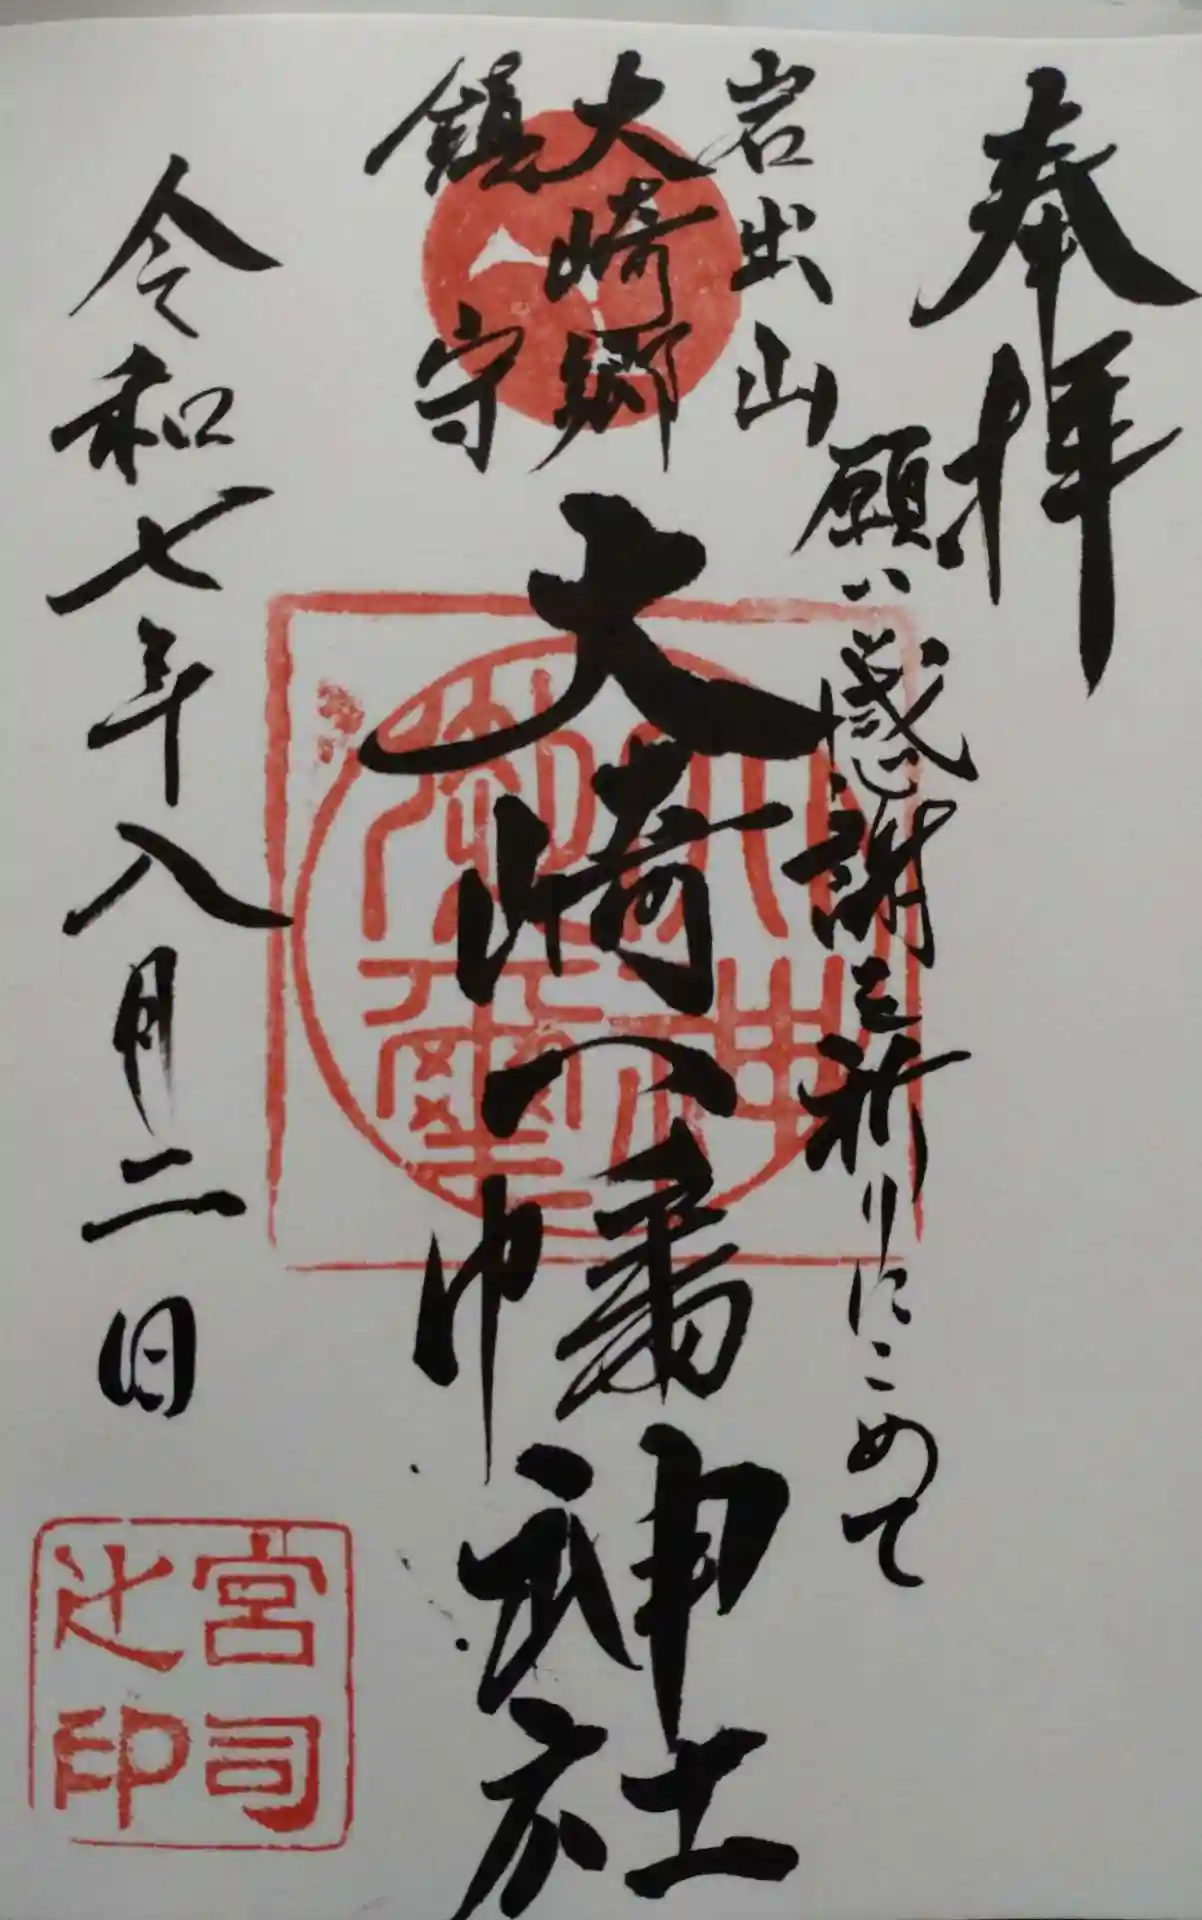 奉拝
願いは感謝を祈りにこめて
岩出山
大崎郷
鎮守
大崎八幡神社
令和七年八月二日
宮司
辻印